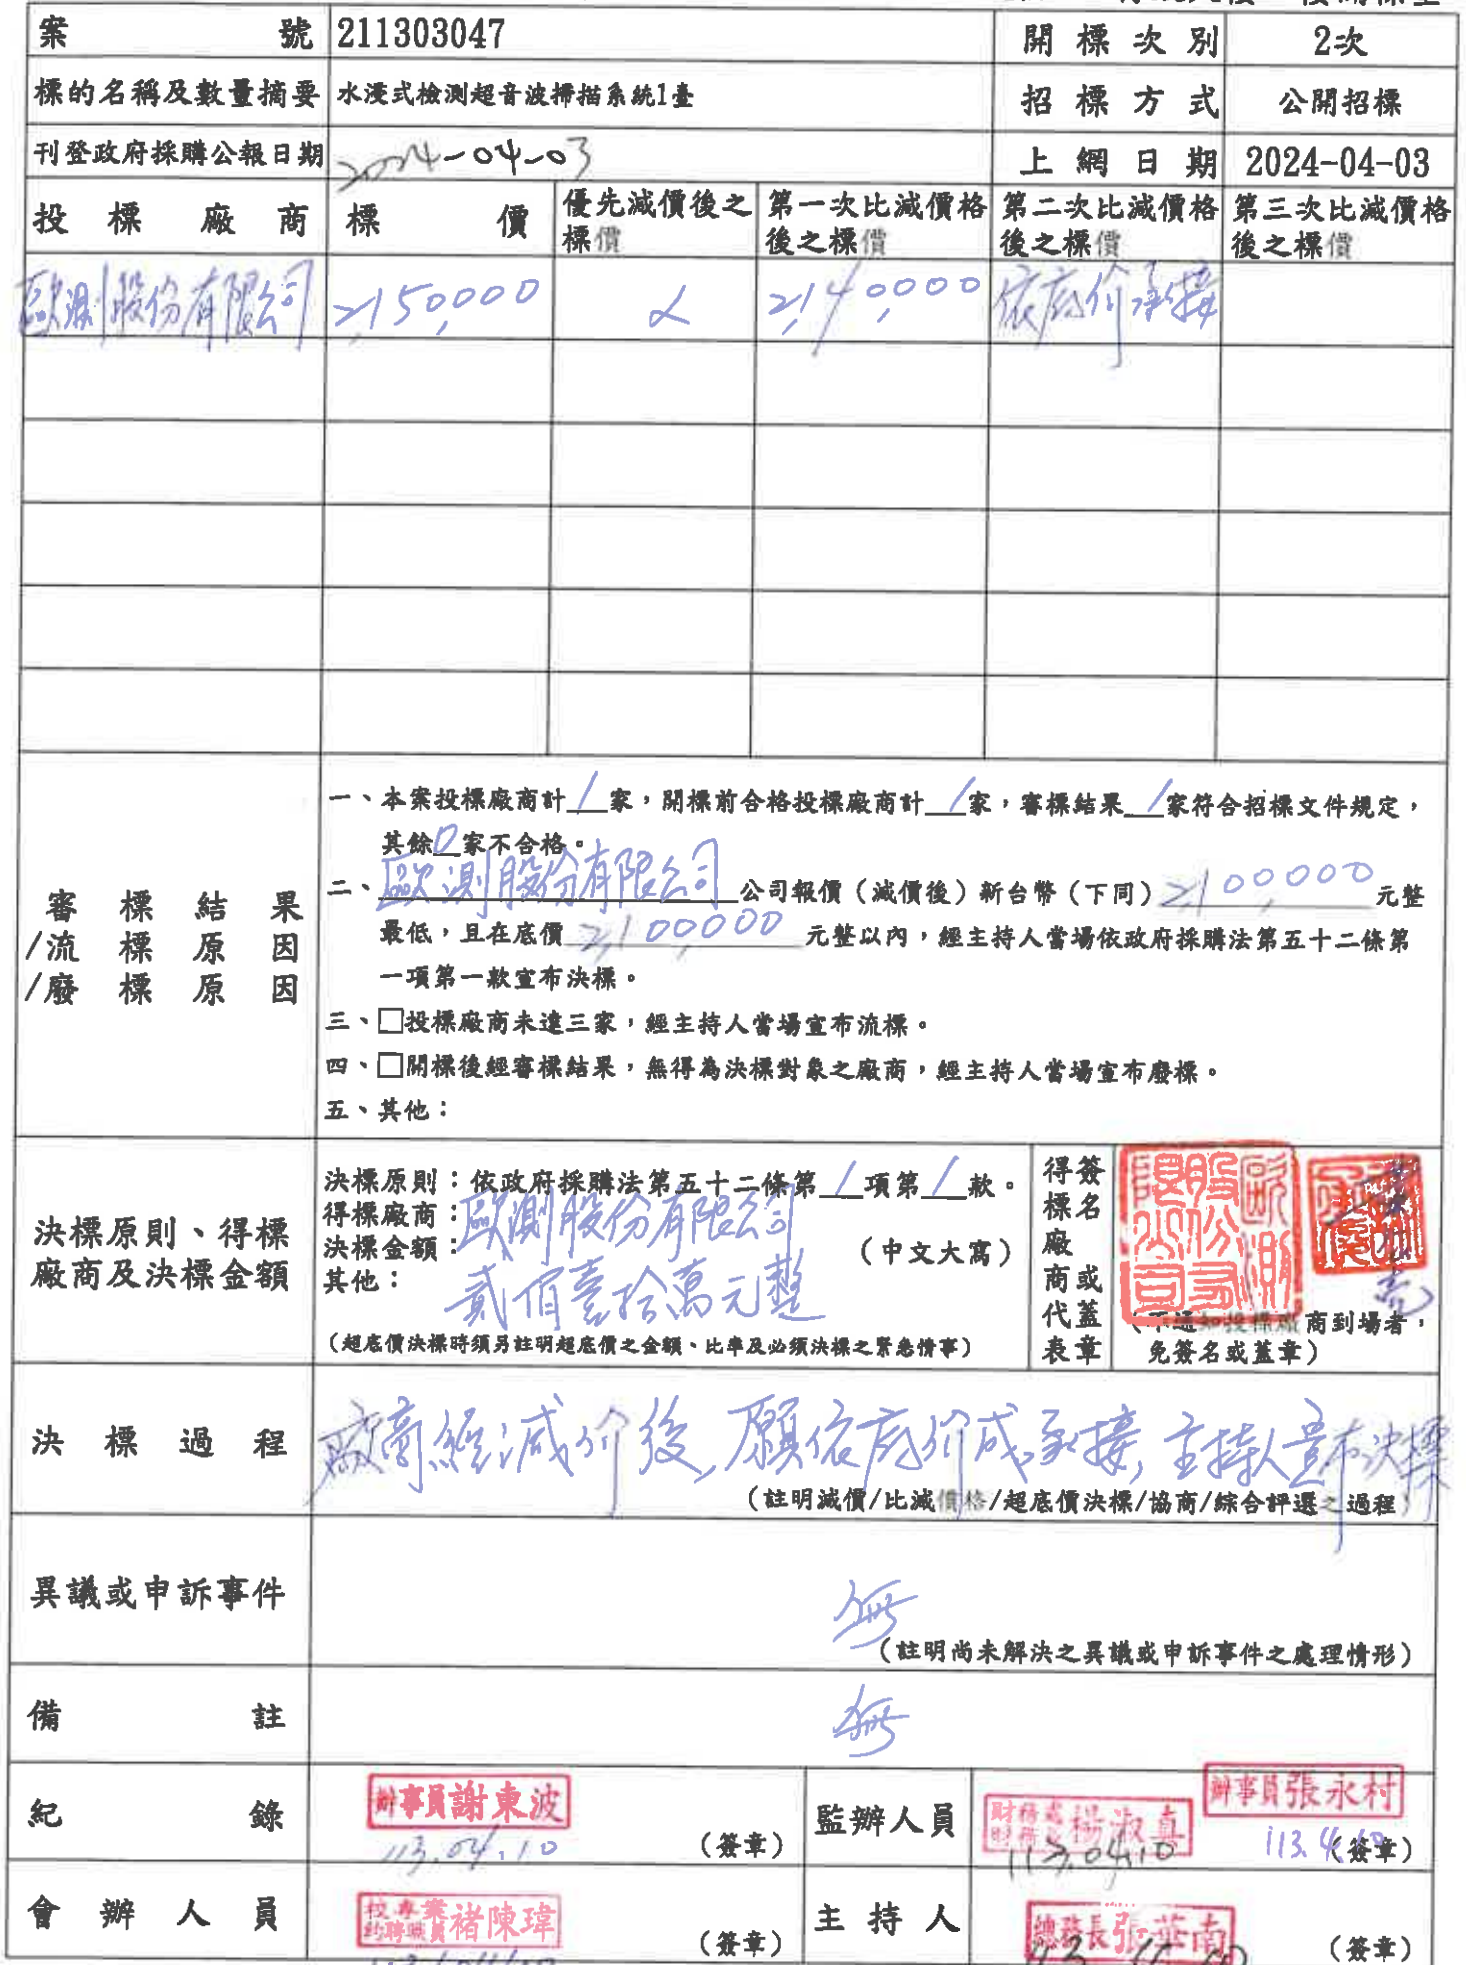 案號 211303047 開標次別 2次
標的名稱及數量摘要 水浸式檢測超音波掃描系統1臺 招標方式 公開招標
刊登政府採購公報日期 2024-04-03 上網日期 2024-04-03
投標廠商 標價 優先減價後之標價 第一次比減價格後之標價 第二次比減價格後之標價 第三次比減價格後之標價
歐測股份有限公司 2,150,000 2,140,000 依底价承接
審標結果
/流標原因
/廢標原因
一、本案投標廠商計1家,開標前合格投標廠商計1家,審標結果1家符合招標文件規定,
其餘0家不合格。
二、歐測股份有限公司公司報價(減價後)新台幣(下同)2,100,000元整
最低,且在底價2,100,000元整以內,經主持人當場依政府採購法第五十二條第
一項第一款宣布決標。
三、□投標廠商未達三家,經主持人當場宣布流標。
四、□開標後經審標結果,無得為決標對象之廠商,經主持人當場宣布廢標。
五、其他:
決標原則、得標
廠商及決標金額
決標原則:依政府採購法第五十二條第1項第1款。
得標廠商:歐測股份有限公司
決標金額: (中文大寫)
其他: 貳佰壹拾萬元整
(超底價決標時須另註明超底價之金額、比率及必須決標之緊急情事)
得標廠商代表
簽名或蓋章
歐測股份有限公司
(不通知投標廠商到場者,
免簽名或蓋章)
決標過程
廠商經減价後,願依底价成承接,主持人宣布決標
(註明減價/比減價格/超底價決標/協商/綜合評選之過程)
異議或申訴事件 無
(註明尚未解決之異議或申訴事件之處理情形)
備註 無
紀錄 辦事員謝東波 113.04.10 (簽章)
監辦人員 財務處 楊淑真 113.04.10 辦事員張永村 113.4.10 (簽章)
會辦人員 校專業約聘職員褚陳瑋 (簽章)
主持人 總務長張華南 (簽章)